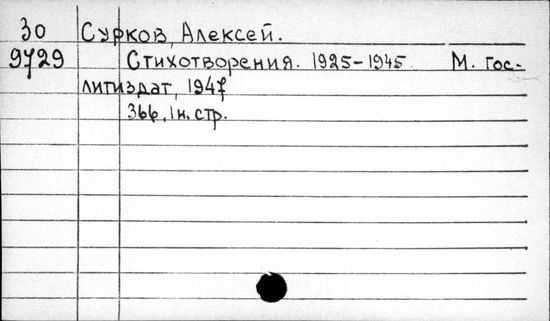 30 Сурков, Алексей.
9729 Стихотворения. 1925-1945. М. Гос-
литиздат, 1947
366, 1н. стр.